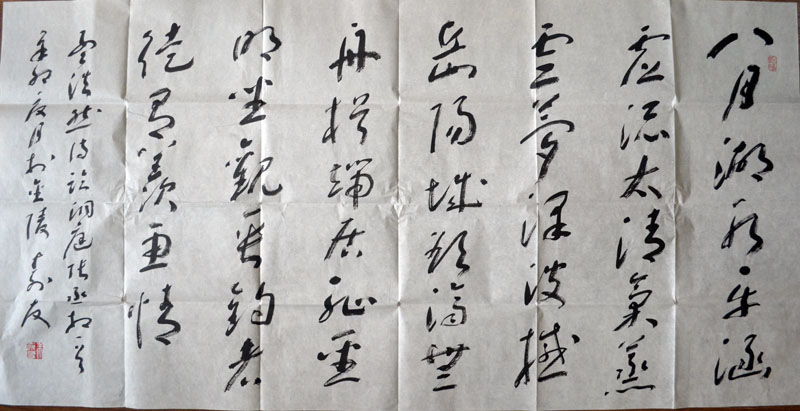 八月湖水平涵
虛混太清氣蒸
雲夢澤波撼
岳陽城欲濟無
舟楫端居恥聖
明坐觀垂釣者
徒有羨魚情
孟浩然詩臨洞庭張丞相
辛卯夏月於金陵 友